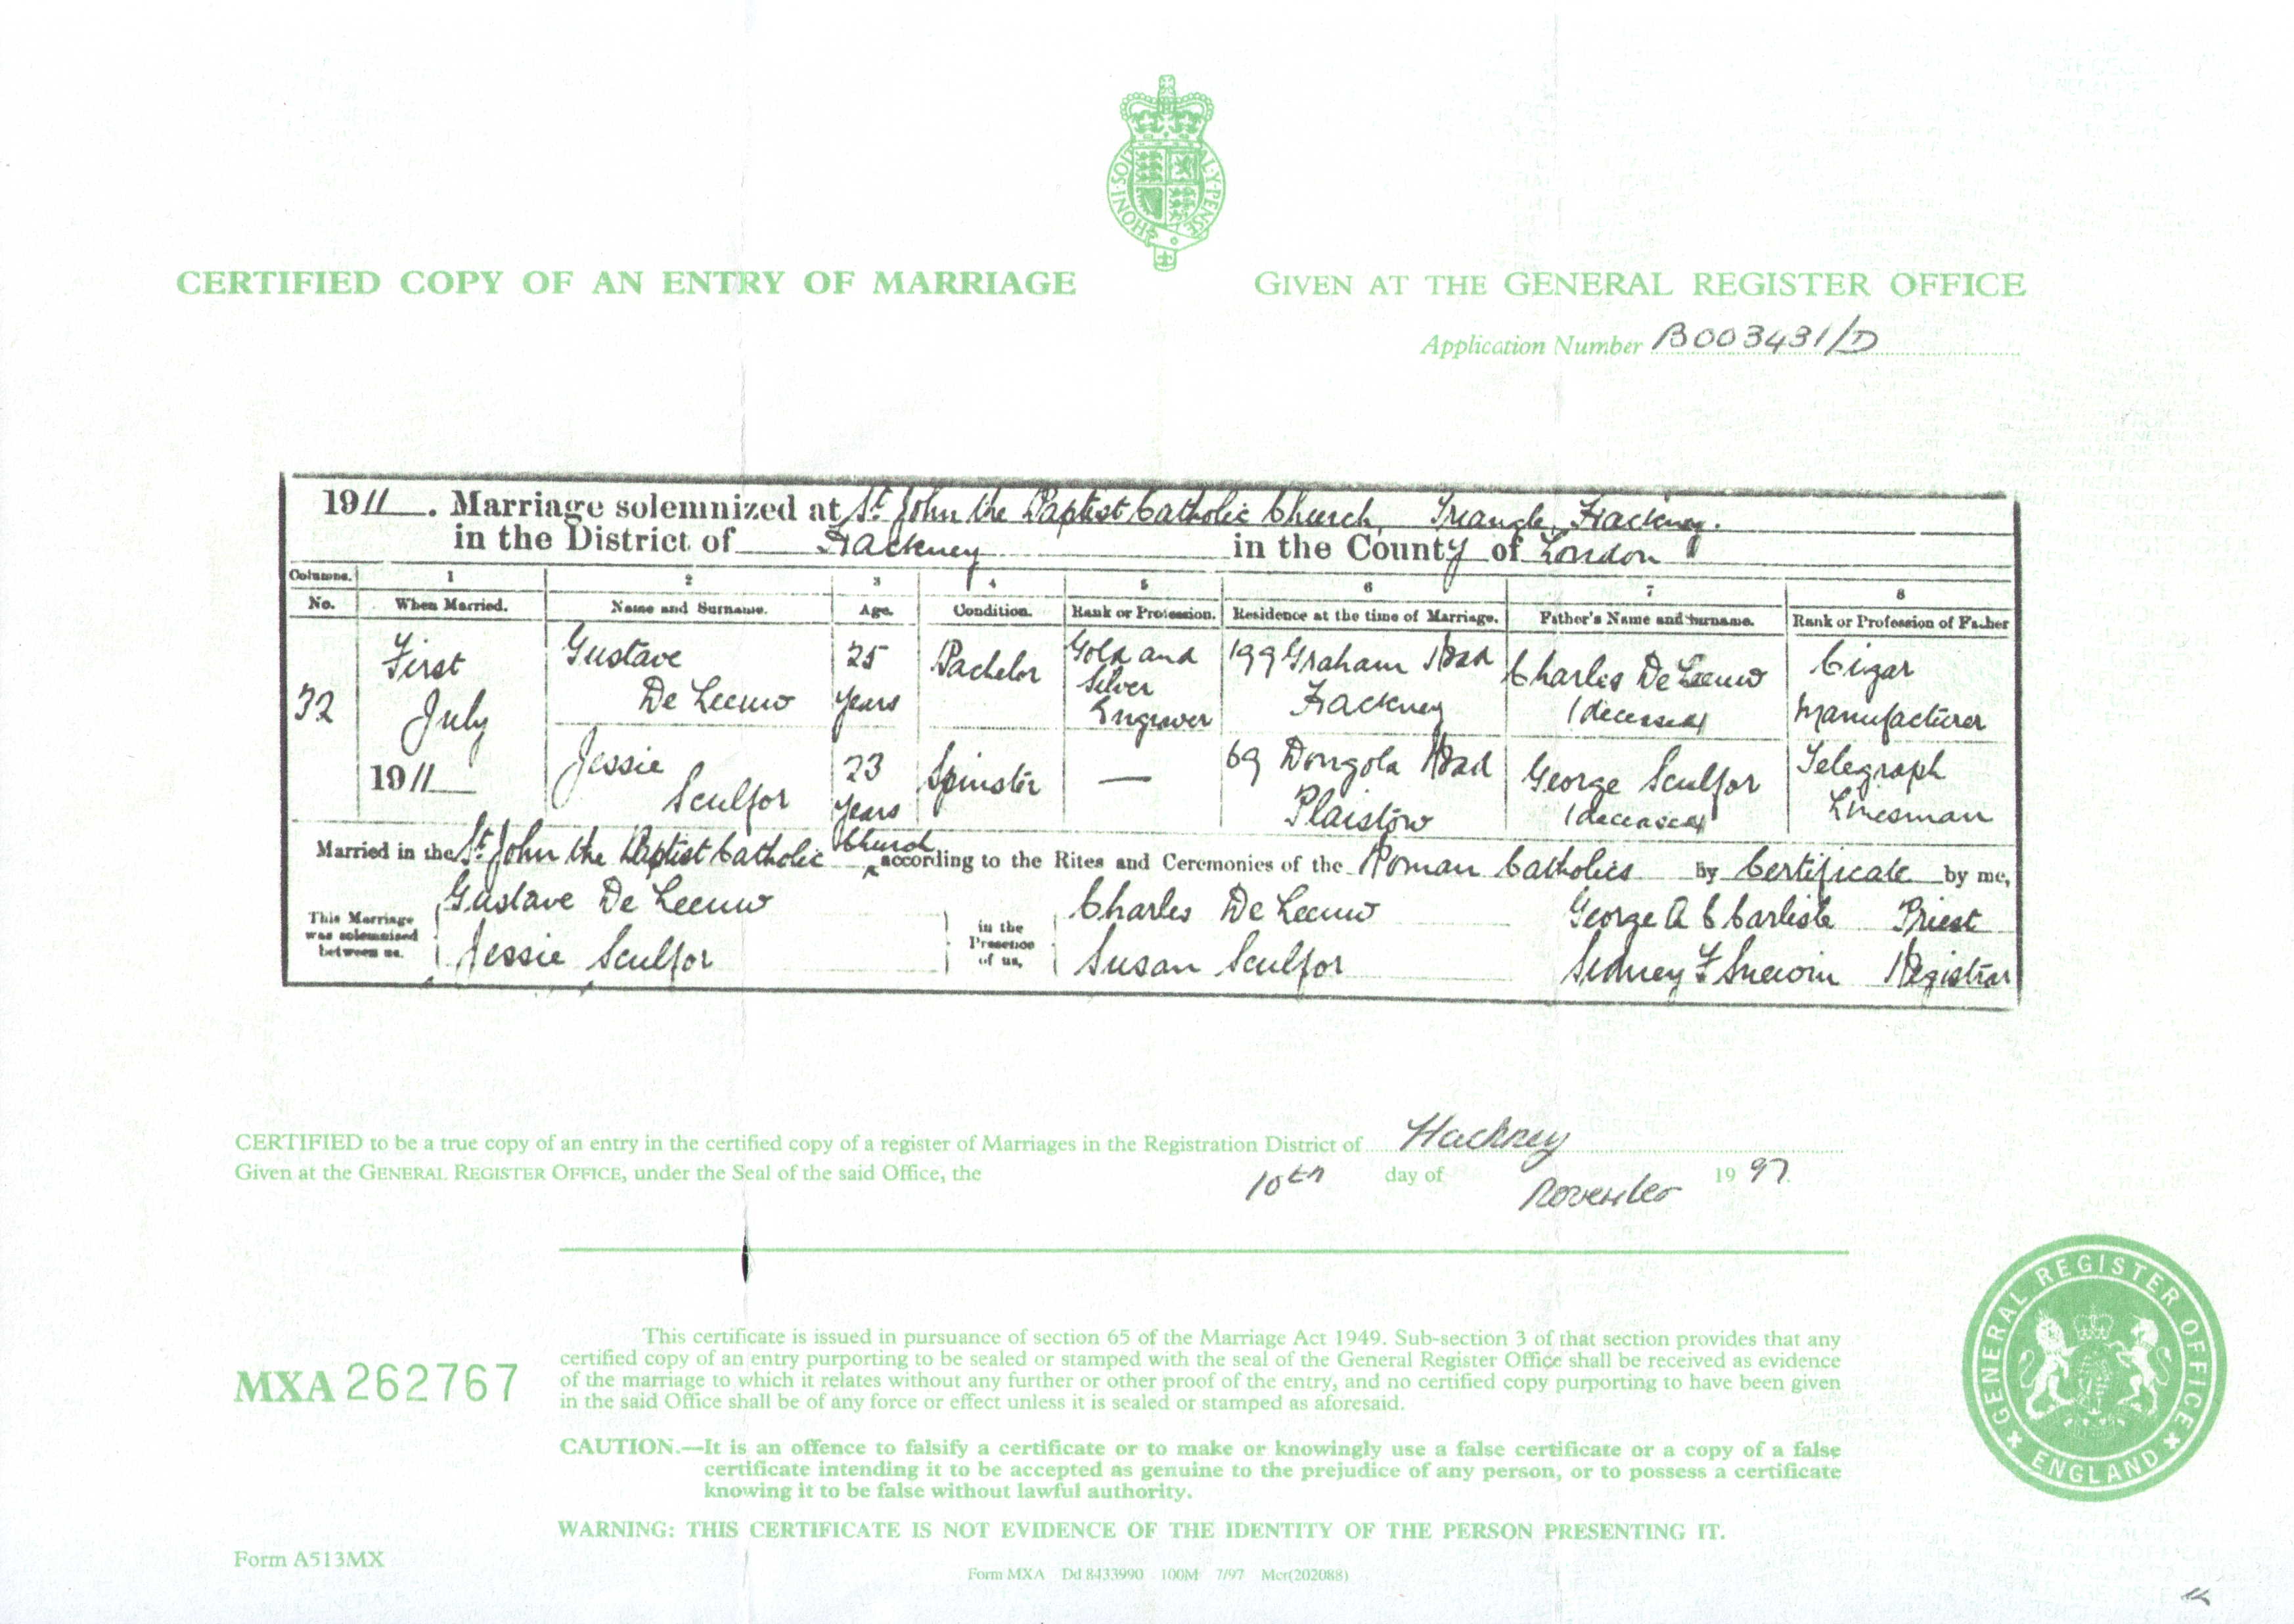 HONI·SOIT
AL·Y·PENSE
CERTIFIED COPY OF AN ENTRY OF MARRIAGE
GIVEN AT THE GENERAL REGISTER OFFICE
Application Number B003431/D
1911. Marriage solemnized at St. John the Baptist Catholic Church, Triangle, Hackney.
in the District of Hackney in the County of London
Columns. 1 2 3 4 5 6 7 8
No. When Married. Name and Surname. Age. Condition. Rank or Profession. Residence at the time of Marriage. Father's Name and Surname. Rank or Profession of Father
32 First July 1911
Gustave De Leeuw 25 years Bachelor Gold and Silver Engraver 199 Graham Road Hackney Charles De Leeuw (deceased) Cigar Manufacturer
Jessie Sculfor 23 years Spinster — 69 Dongola Road Plaistow George Sculfor (deceased) Telegraph Linesman
Married in the St. John the Baptist Catholic Church according to the Rites and Ceremonies of the Roman Catholics by Certificate by me,
This Marriage was solemnized between us, Gustave De Leeuw Jessie Sculfor
in the Presence of us, Charles De Leeuw Susan Sculfor
George A C Carlisle Priest
Sidney F Registrar
CERTIFIED to be a true copy of an entry in the certified copy of a register of Marriages in the Registration District of Hackney
Given at the GENERAL REGISTER OFFICE, under the Seal of the said Office, the 10th day of November 1997
MXA 262767
This certificate is issued in pursuance of section 65 of the Marriage Act 1949. Sub-section 3 of that section provides that any
certified copy of an entry purporting to be sealed or stamped with the seal of the General Register Office shall be received as evidence
of the marriage to which it relates without any further or other proof of the entry, and no certified copy purporting to have been given
in the said Office shall be of any force or effect unless it is sealed or stamped as aforesaid.
CAUTION.—It is an offence to falsify a certificate or to make or knowingly use a false certificate or a copy of a false
certificate intending it to be accepted as genuine to the prejudice of any person, or to possess a certificate
knowing it to be false without lawful authority.
WARNING: THIS CERTIFICATE IS NOT EVIDENCE OF THE IDENTITY OF THE PERSON PRESENTING IT.
GENERAL REGISTER OFFICE
ENGLAND
Form A513MX
Form MXA Dd 8433990 100M 7/97 Mcr(202088)